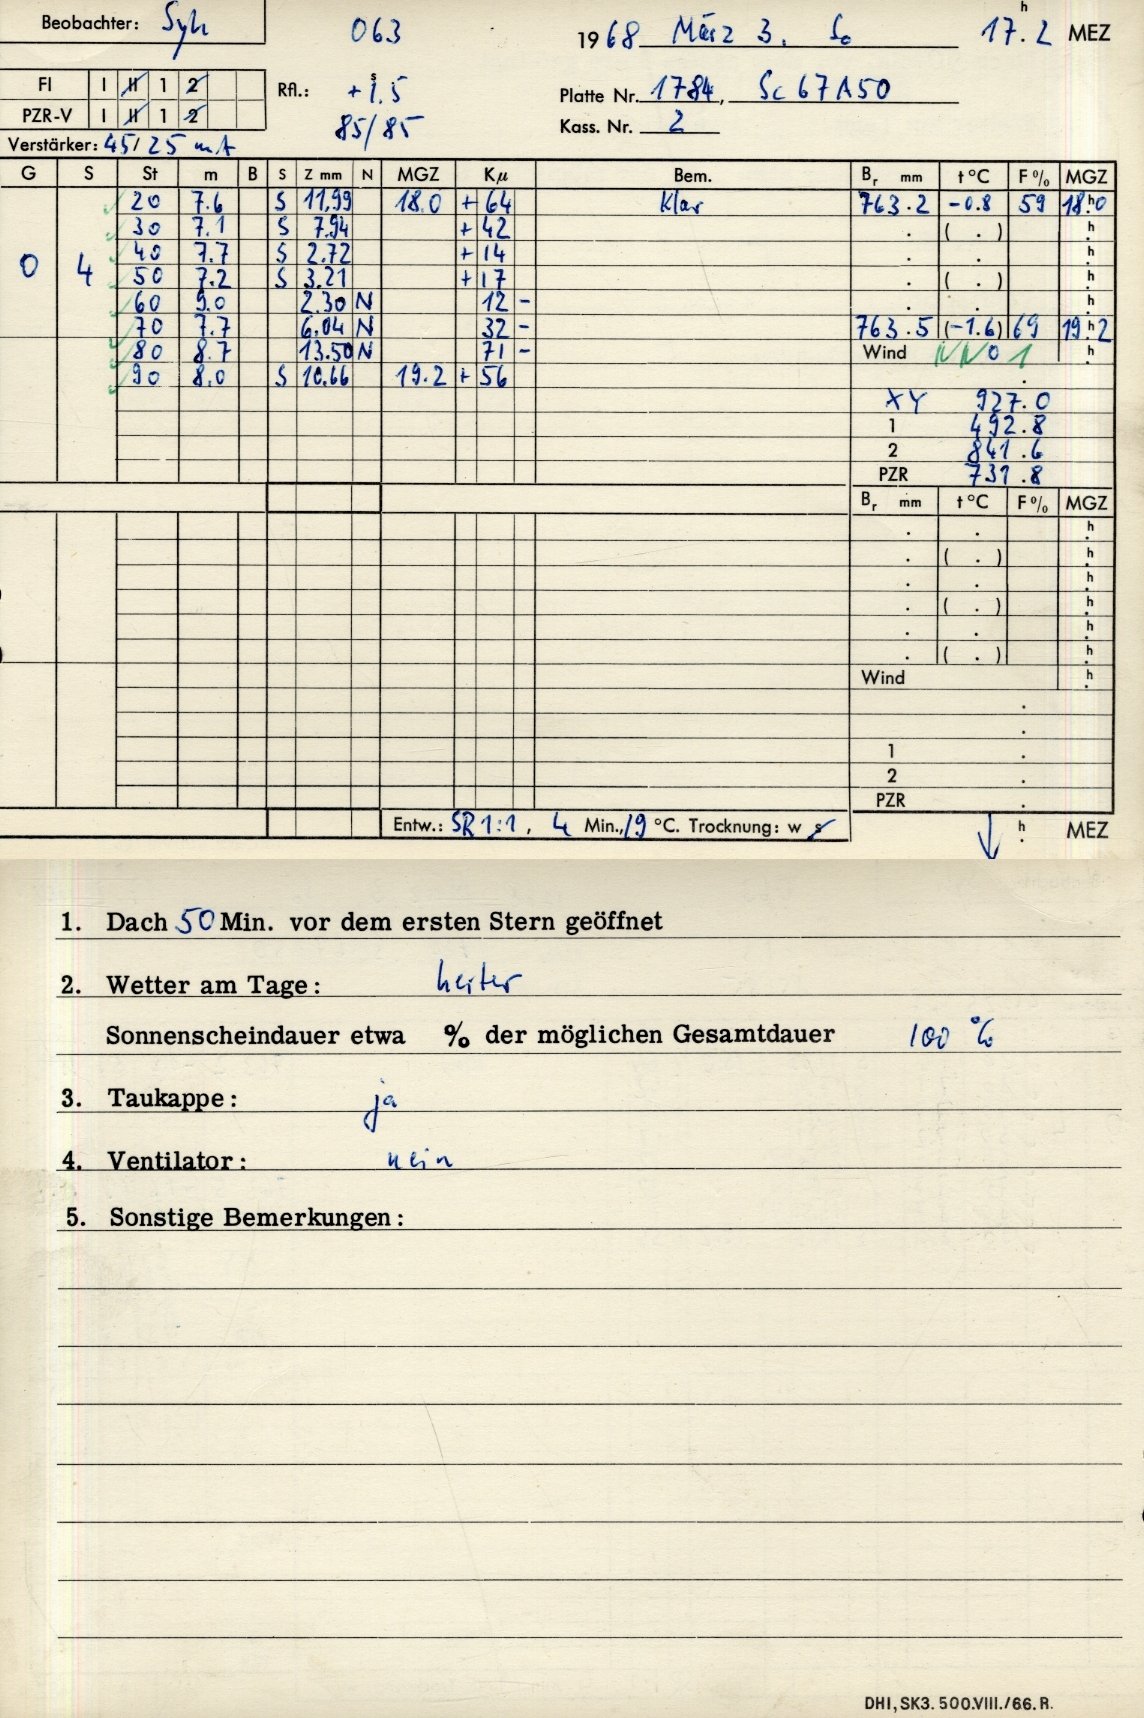 Beobachter: Syh 063 1968 März 3. So 17.h2 MEZ
FI I II 1 2 Rfl.: +1.s5 Platte Nr. 1784, Sc67A50
PZR-V I II 1 2 85/85 Kass. Nr. 2
Verstärker: 45/25 mA
G S St m B S Z mm N MGZ Kμ Bem. Br mm t °C F % MGZ
20 7.6 S 11.99 18.0 + 64 Klar 763.2 -0.8 59 18.h0
30 7.1 S 7.94 + 42 . ( . ) h.
40 7.7 S 2.72 + 14 . . h.
0 4 50 7.2 S 3.21 + 17 . ( . ) h.
60 9.0 2.30 N 12 - . . h.
70 7.7 6.04 N 32 - 763.5 (-1.6) 69 19.h2
80 8.7 13.50 N 71 - Wind NN0 1 h.
90 8.0 S 10.66 19.2 + 56 .
XY 927.0
1 492.8
2 841.6
PZR 731.8
Br mm t °C F % MGZ
. . h.
. ( . ) h.
. . h.
. ( . ) h.
. . h.
. ( . ) h.
Wind h.
.
.
1 .
2 .
PZR .
Entw.: SR 1:1, 4 Min., 19 °C. Trocknung: w s h. MEZ
1. Dach 50 Min. vor dem ersten Stern geöffnet
2. Wetter am Tage: heiter
Sonnenscheindauer etwa % der möglichen Gesamtdauer 100 %
3. Taukappe: ja
4. Ventilator: nein
5. Sonstige Bemerkungen:
DHI, SK3. 500.VIII./66. R.